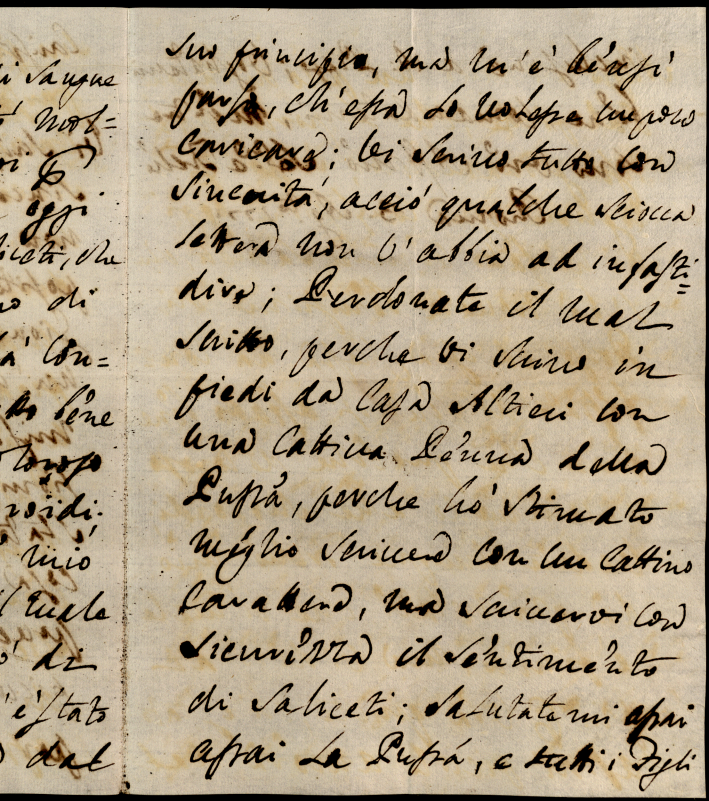 i Sangue
mol=
oi
oggi
liceti, che
no di
à Con=
tto bene
toroso
roidi.
mio
l quale
o' di
è stato
dal
suo principio, ma m'è bensì
parso, ch'essa lo volesse un poco
caricare; vi scrivo tutto con
sincerità, acciò qualche sciocca
lettera non v'abbia ad infasti=
dire; Perdonate il mal
scritto, perche vi scrivo in
piedi da Casa Altieri con
una Cattiva Penna della
Pussà, perche hò stimato
meglio scrivere con un Cattivo
Carattere, ma scrivervi con
sicurezza il sentimento
di Saliceti; salutatemi assai
assai La Pussà, e tutti i Figli